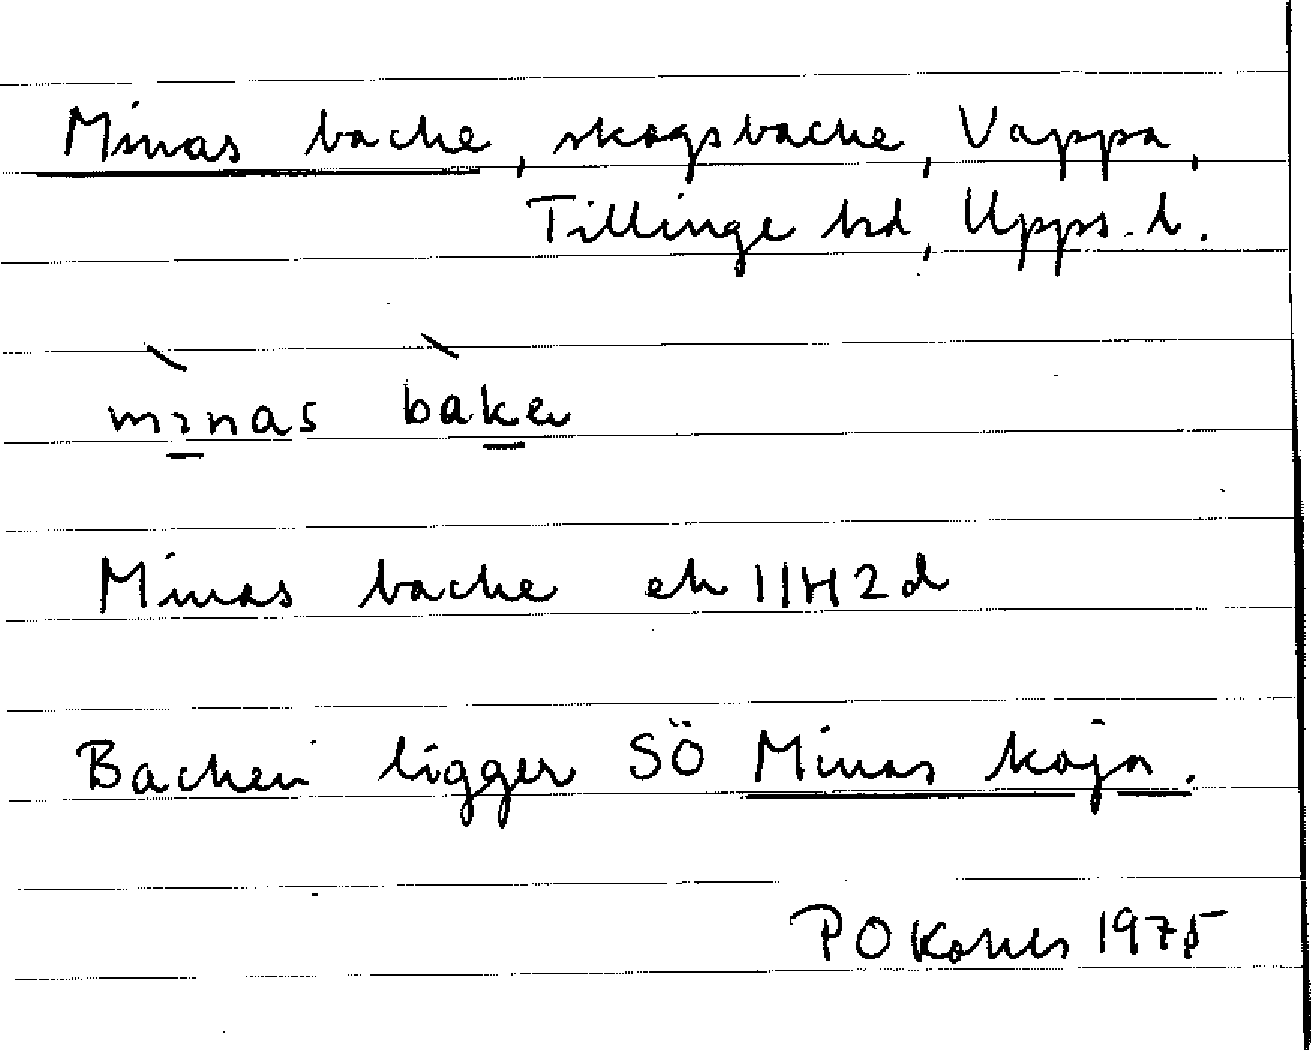 Minas backe, skogsbacke, Vappa,
Tillinge hd, Upps. l.
mınas baken
Minas backe ek 11H2d
Backen ligger SÖ Minas koja.
P O 1975